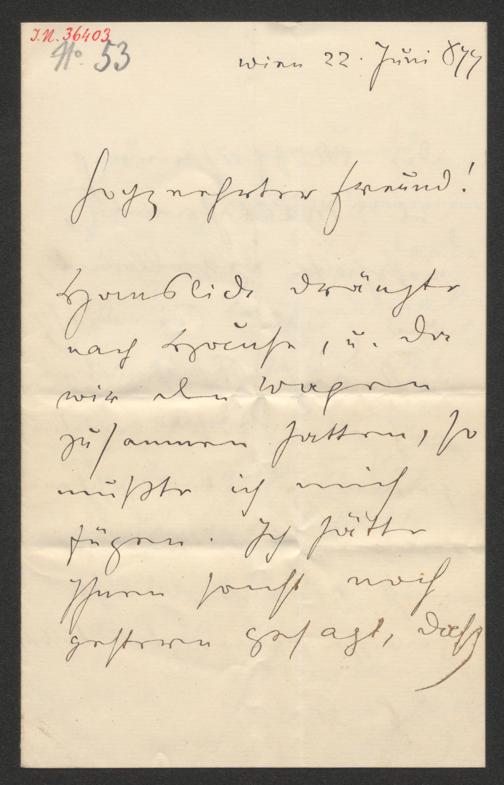 I.N. 36403
No. 53
Wien 22. Juni 877
Hochverehrter Freund!
drängte
nach Hause, u. da
wir den Wagen
zusammen hatten, so
mußte ich mich
fügen. Ich hätte
Ihnen sonst noch
gestern gesagt, daß